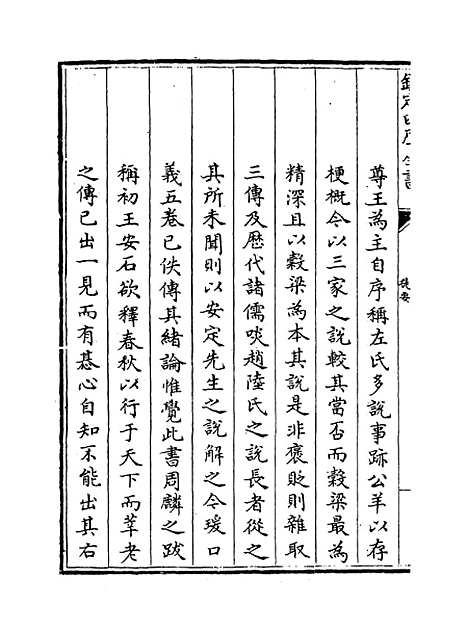 欽定四庫全書
提要
尊王為主自序稱左氏多說事跡公羊以存
梗概今以三家之說較其當否而穀梁最為
精深且以穀梁為本其說是非褒貶則雜取
三傳及歷代諸儒啖趙陸氏之說長者從之
其所未聞則以安定先生之說解之今瑗口
義五卷已佚傳其緒論惟覺此書周麟之跋
稱初王安石欲釋春秋以行于天下而莘老
之傳已出一見而有惎心自知不能出其右